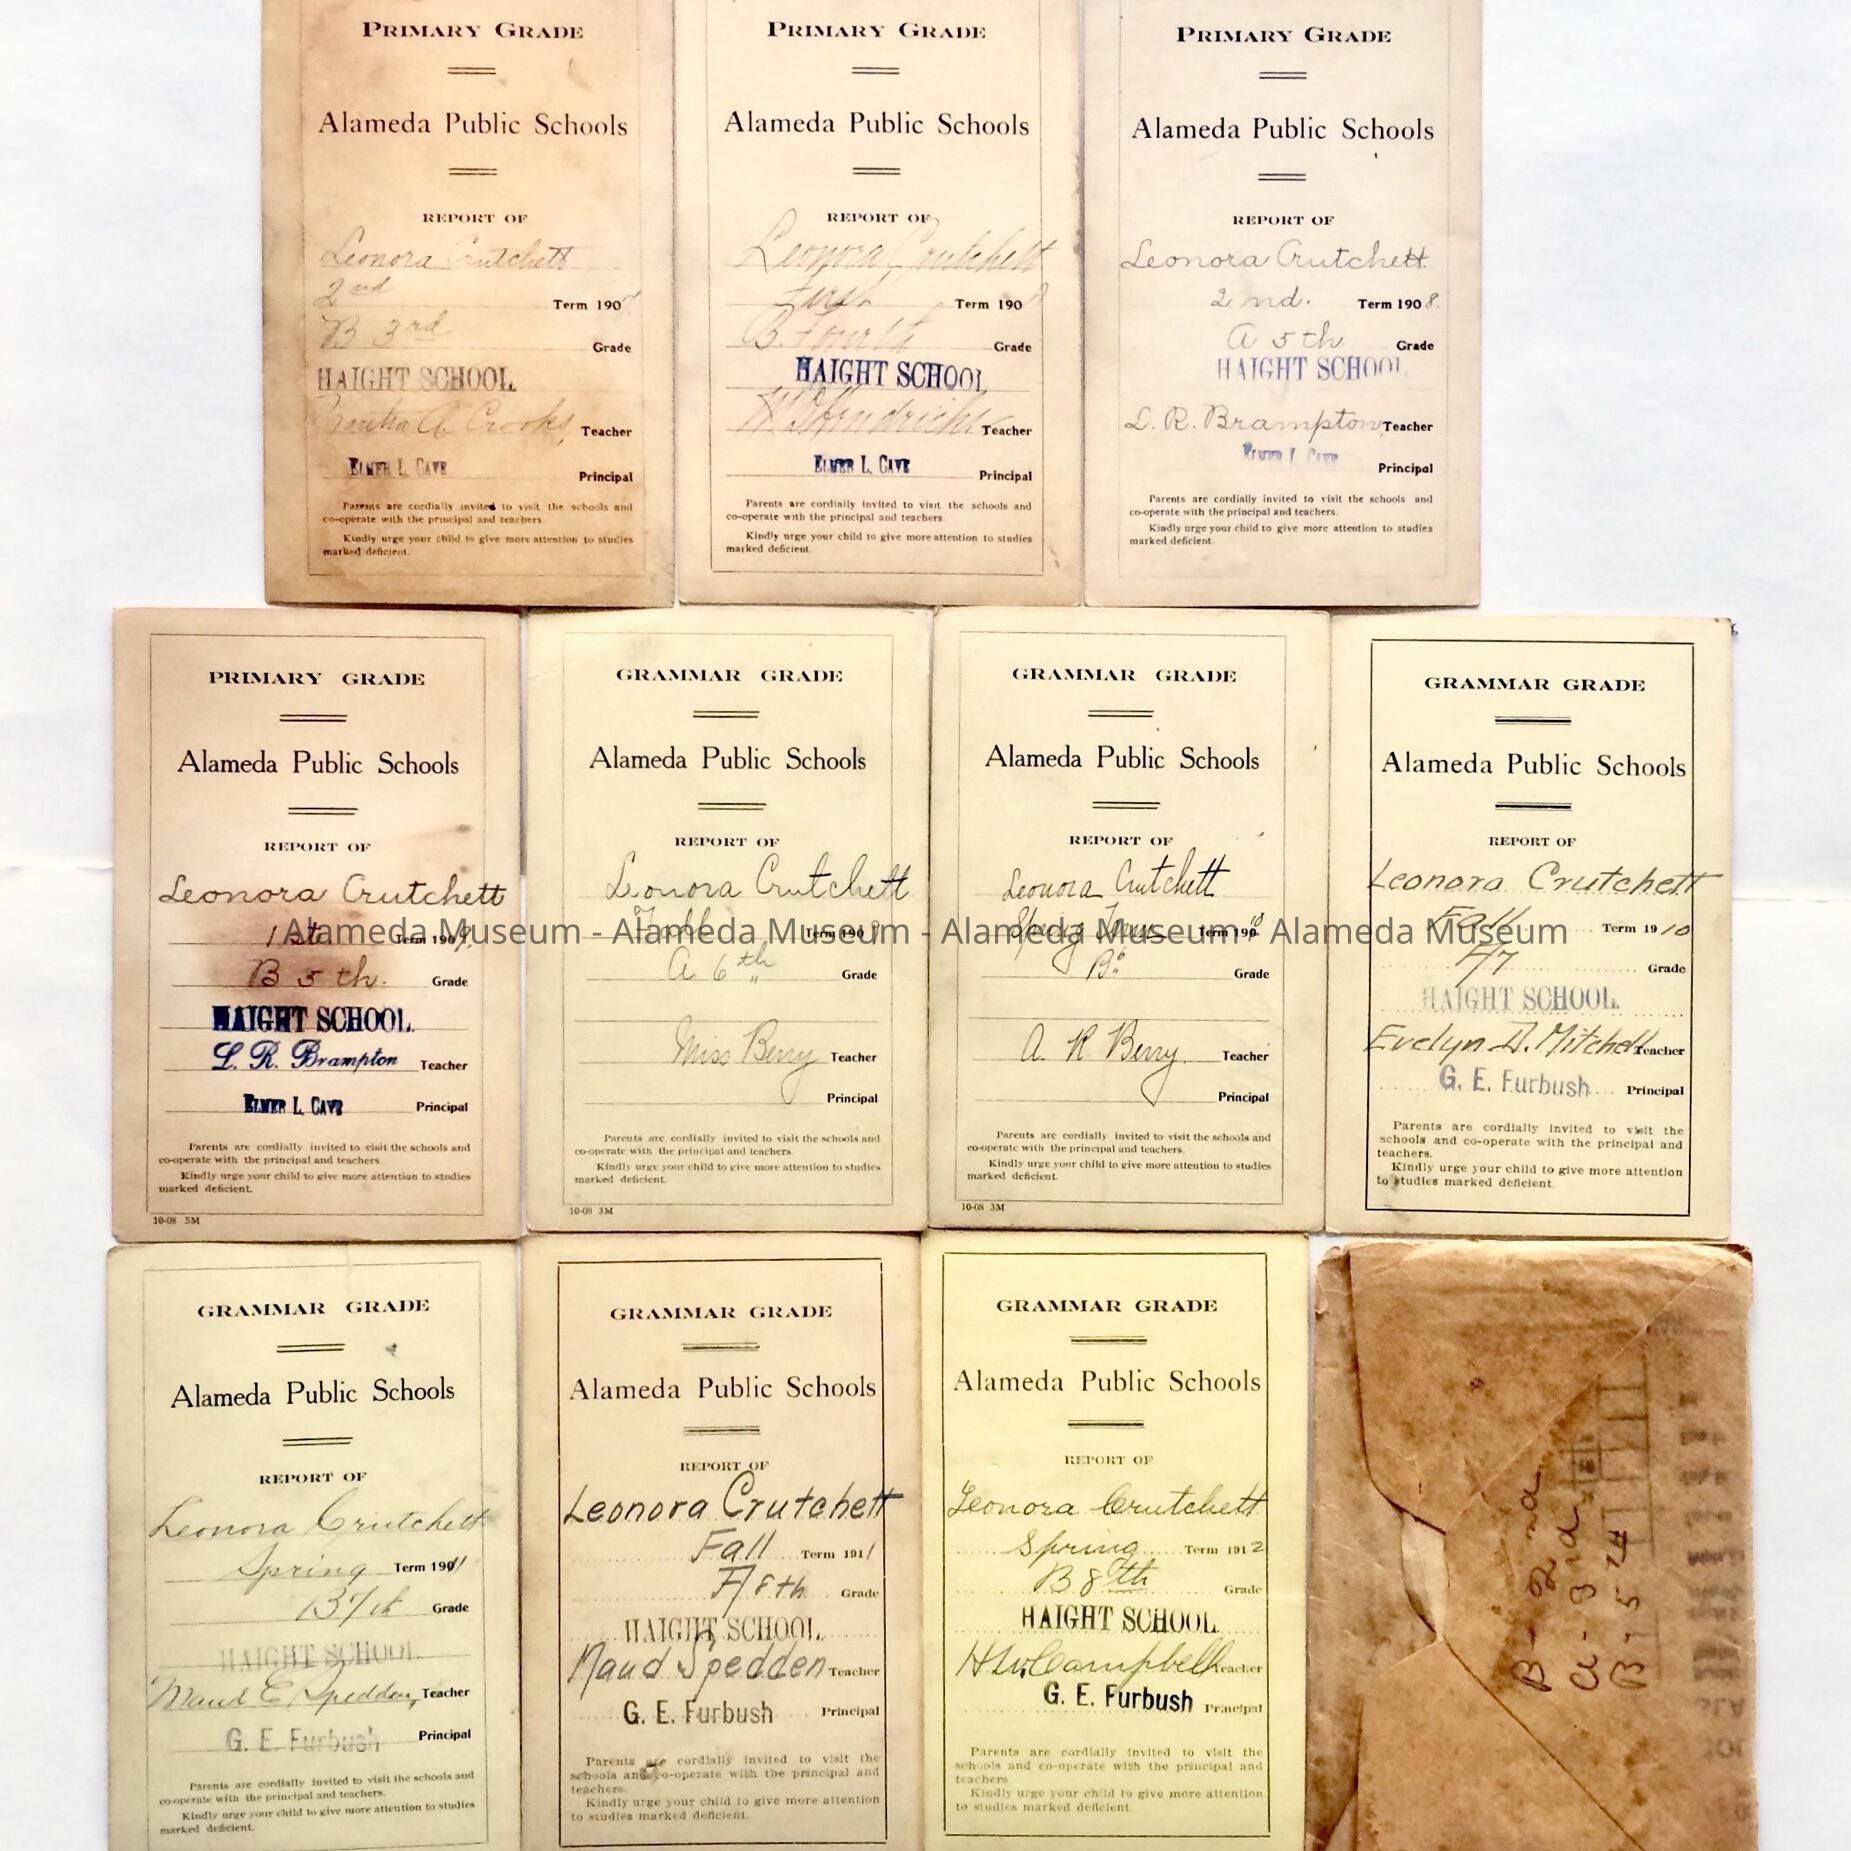 PRIMARY GRADE
Alameda Public Schools
REPORT OF
Leonora Crutchett
2nd Term 190
B 3rd Grade
HAIGHT SCHOOL
Martha A. Crooks, Teacher
ELMER L. CAVE Principal
Parents are cordially invited to visit the schools and
co-operate with the principal and teachers.
Kindly urge your child to give more attention to studies
marked deficient.
PRIMARY GRADE
Alameda Public Schools
REPORT OF
Leonora Crutchett
First Term 190
B. Fourth Grade
HAIGHT SCHOOL
Teacher
ELMER L. CAVE Principal
Parents are cordially invited to visit the schools and
co-operate with the principal and teachers.
Kindly urge your child to give more attention to studies
marked deficient.
PRIMARY GRADE
Alameda Public Schools
REPORT OF
Leonora Crutchett.
2nd. Term 1908.
A 5th. Grade
HAIGHT SCHOOL
L. R. Brampton, Teacher
ELMER L. CAVE Principal
Parents are cordially invited to visit the schools and
co-operate with the principal and teachers.
Kindly urge your child to give more attention to studies
marked deficient.
PRIMARY GRADE
Alameda Public Schools
REPORT OF
Leonora Crutchett
1st. Term 1909.
B 5th. Grade
HAIGHT SCHOOL.
L. R. Brampton Teacher
ELMER L. CAVE Principal
Parents are cordially invited to visit the schools and
co-operate with the principal and teachers.
Kindly urge your child to give more attention to studies
marked deficient.
10-08 5M
GRAMMAR GRADE
Alameda Public Schools
REPORT OF
Leonora Crutchett
Term 1909
A 6th Grade
Miss Berry Teacher
Principal
Parents are cordially invited to visit the schools and
co-operate with the principal and teachers.
Kindly urge your child to give more attention to studies
marked deficient.
10-08 3M
GRAMMAR GRADE
Alameda Public Schools
REPORT OF
Leonora Crutchett
Spring Term Term 190 10
B6 Grade
A. R. Berry. Teacher
Principal
Parents are cordially invited to visit the schools and
co-operate with the principal and teachers.
Kindly urge your child to give more attention to studies
marked deficient.
10-08 3M
GRAMMAR GRADE
Alameda Public Schools
REPORT OF
Leonora Crutchett
Fall Term 1910
A7 Grade
HAIGHT SCHOOL.
Evelyn D. Mitchell Teacher
G. E. Furbush Principal
Parents are cordially invited to visit the
schools and co-operate with the principal and
teachers.
Kindly urge your child to give more attention
to studies marked deficient.
Alameda Museum - Alameda Museum - Alameda Museum - Alameda Museum
GRAMMAR GRADE
Alameda Public Schools
REPORT OF
Leonora Crutchett
Spring Term 1911
B 7th Grade
HAIGHT SCHOOL.
Maud E. Spedden, Teacher
G. E. Furbush Principal
Parents are cordially invited to visit the schools and
co-operate with the principal and teachers.
Kindly urge your child to give more attention to studies
marked deficient.
GRAMMAR GRADE
Alameda Public Schools
REPORT OF
Leonora Crutchett
Fall Term 1911
A 8th Grade
HAIGHT SCHOOL.
Maud Spedden Teacher
G. E. Furbush Principal
Parents are cordially invited to visit the
schools and co-operate with the principal and
teachers.
Kindly urge your child to give more attention
to studies marked deficient.
GRAMMAR GRADE
Alameda Public Schools
REPORT OF
Leonora Crutchett
Spring Term 1912
B 8th Grade
HAIGHT SCHOOL.
H. W. Campbell Teacher
G. E. Furbush Principal
Parents are cordially invited to visit the
schools and co-operate with the principal and
teachers.
Kindly urge your child to give more attention
to studies marked deficient.
B - 2nd
A - 3rd